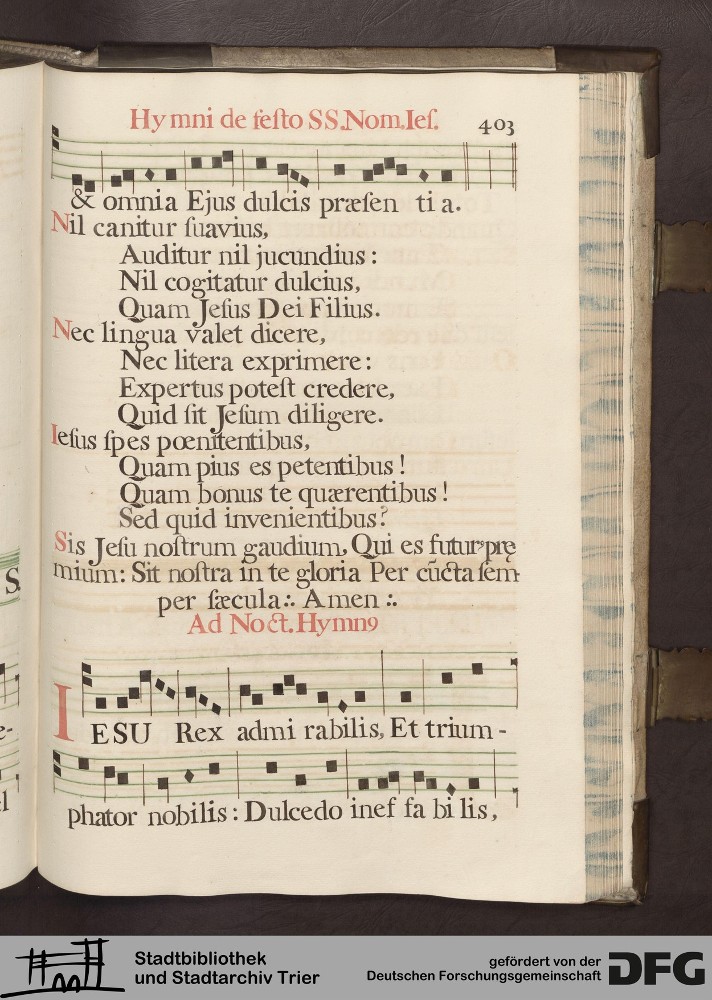 Hymni de festo SS. Nom. Ies. 403
& omnia Ejus dulcis præsen ti a.
Nil canitur suavius,
Auditur nil jucundius:
Nil cogitatur dulcius,
Quam Jesus Dei Filius.
Nec lingua valet dicere,
Nec litera exprimere:
Expertus potest credere,
Quid sit Jesum diligere.
Iesus spes pœnitentibus,
Quam pius es petentibus!
Quam bonus te quærentibus!
Sed quid invenientibus?
Sis Jesu nostrum gaudium, Qui es futurꝰ prę
mium: Sit nostra in te gloria Per cūcta sem-
per sæcula:. Amen:.
Ad Noct. Hymnꝰ
IESU Rex admi rabilis, Et trium-
phator nobilis: Dulcedo inef fa bi lis,
S
e-
el
Stadtbibliothek
und Stadtarchiv Trier
gefördert von der
Deutschen Forschungsgemeinschaft
DFG